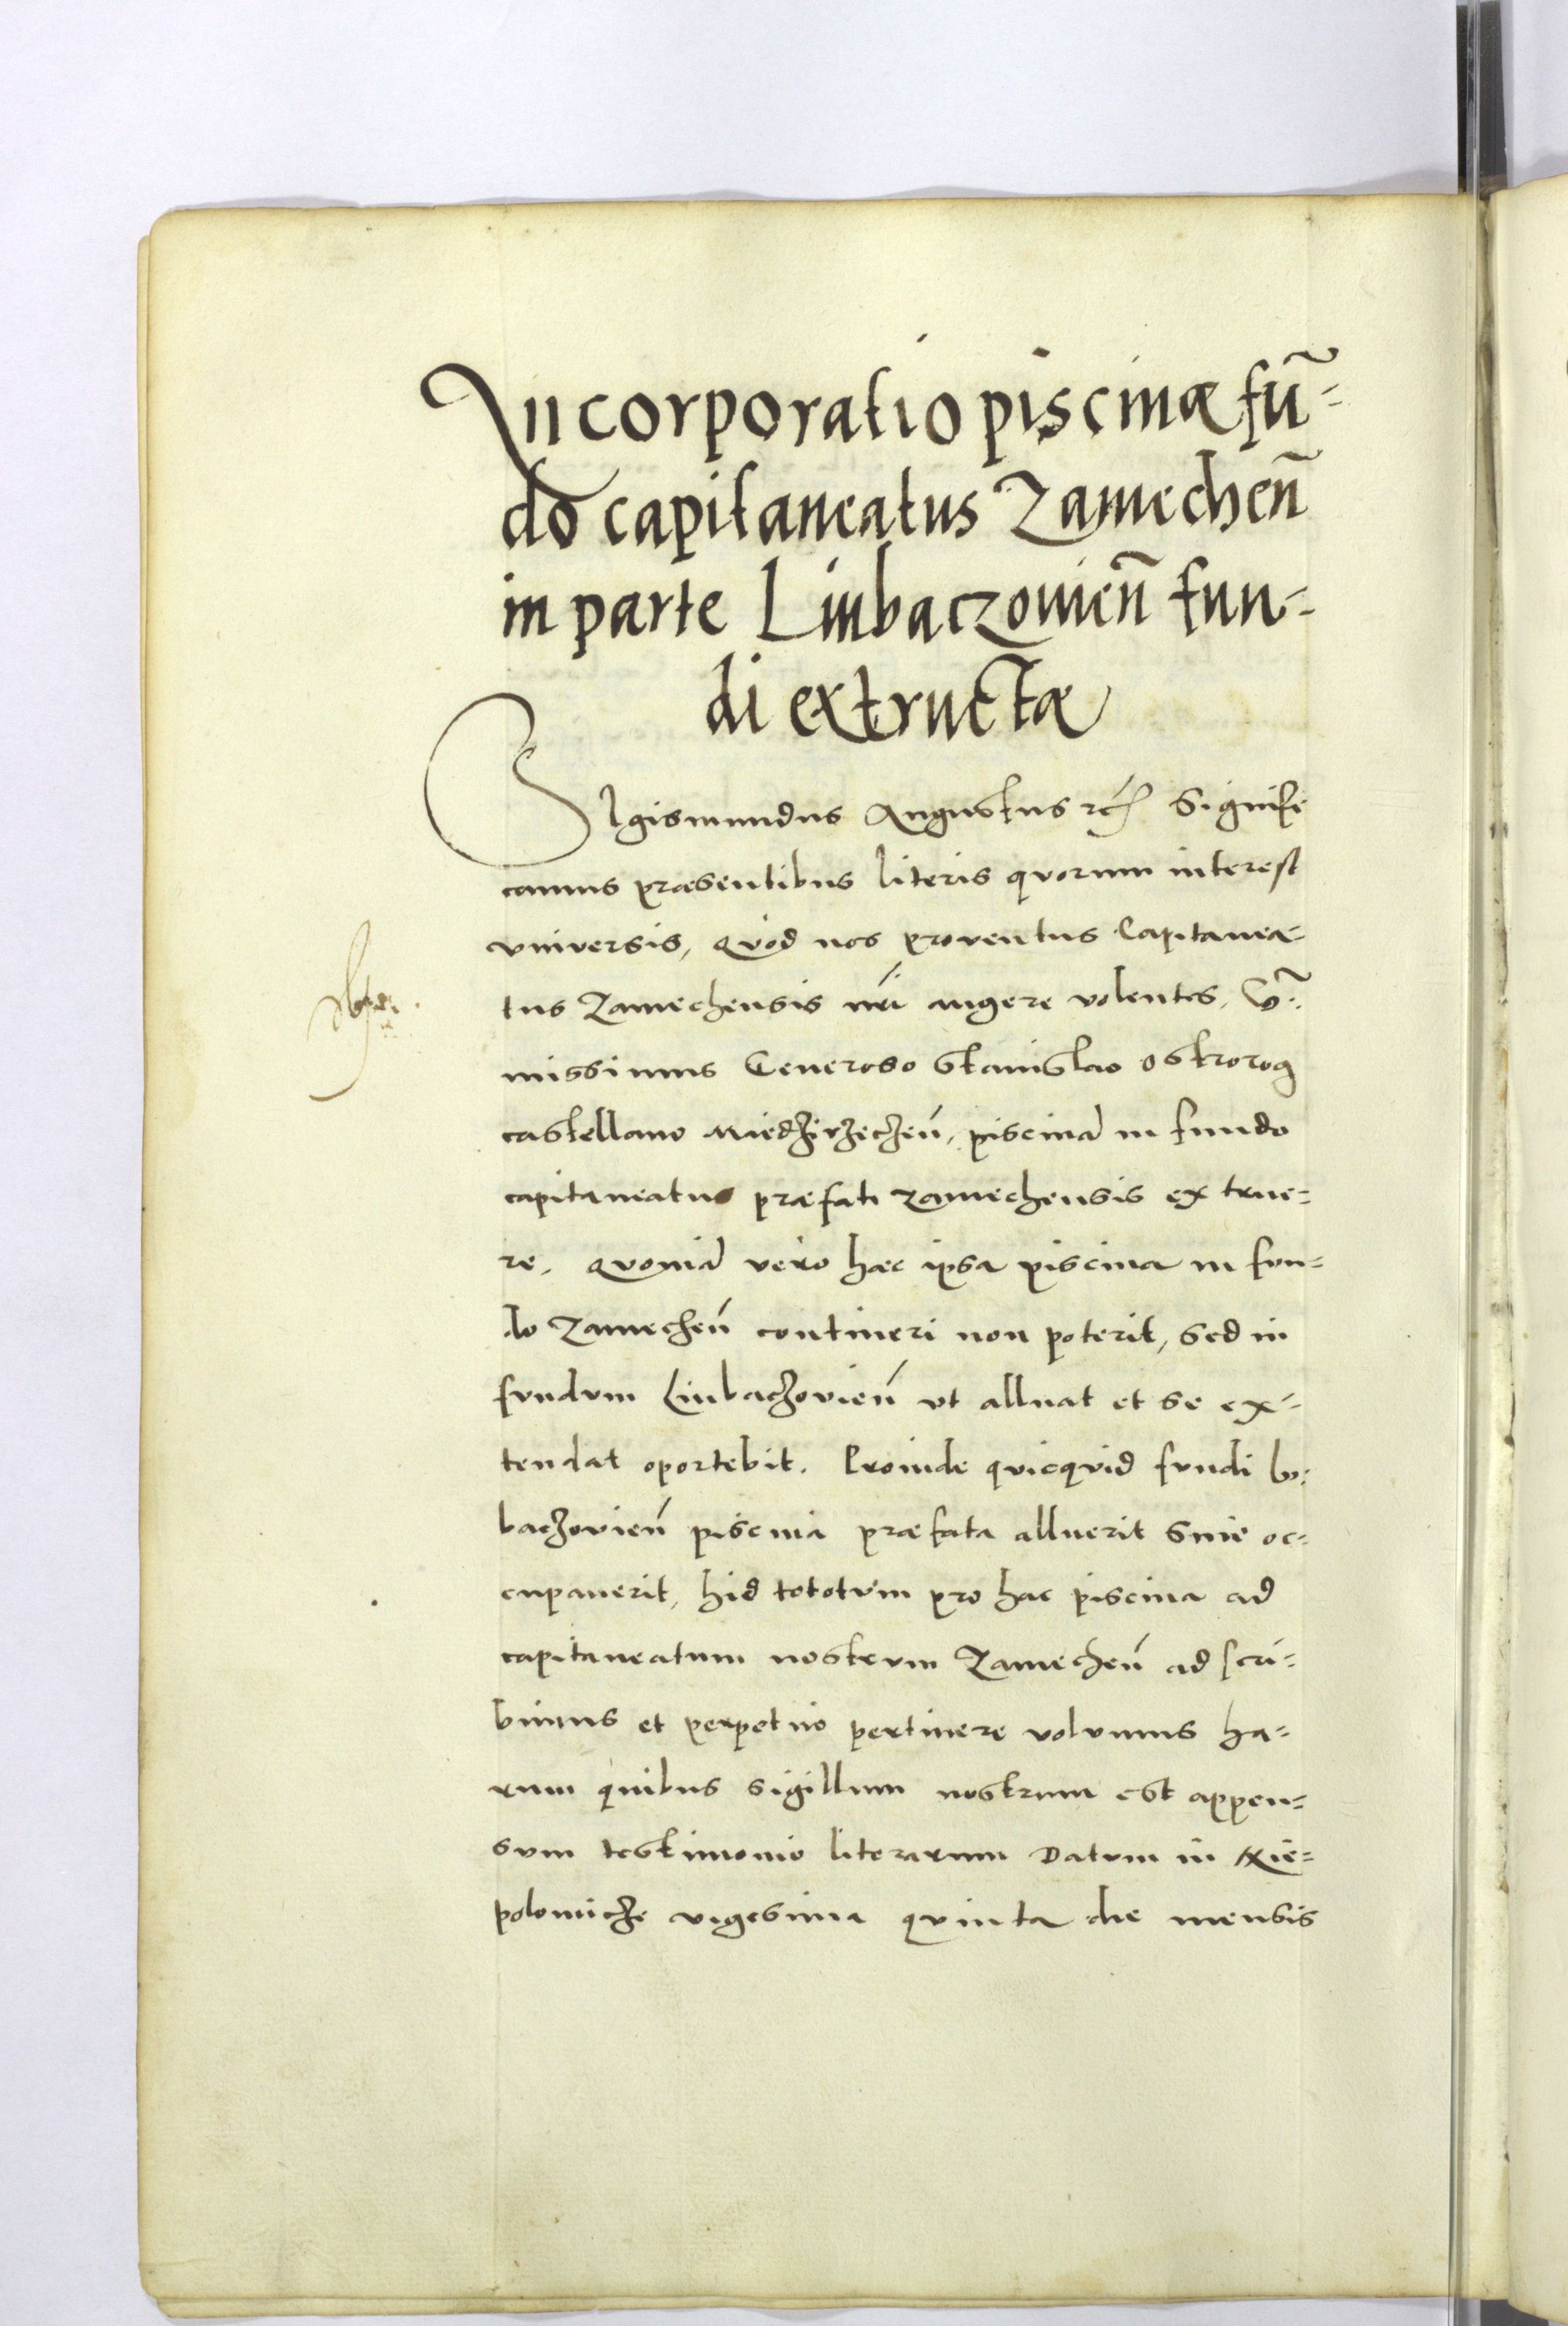 Incorporatio piscinæ fũ-
do capitaneatus Zamecheñ
in parte Liubaczovieñ fun-
di extructæ
SIgismundus Augustus rc̃ Signifi
camus præsentibus literis quorum interest
vniversis, quod nos proventus Capitanea-
tus Zamechensis nr̃i augere volentes,
missimus Generoso Stanislao Ostrorog
castellano Miedzirzeczeñ, piscinã in fundo
capitaneatus præfati Zamechensis ex true-
re, quoniã vero hæc ipsa piscina in fun-
do Zamecheñ contineri non poterit, sed in
fundum Liubaczovieñ vt alluat et se ex-
tendat oportebit. Proinde quicquid fundi Lu-
baczovieñ piscina præfata alluerit sive oc-
cupaverit, hid tototum pro hac piscina ad
capitaneatum nostrum Zamecheñ ad scri-
bimus et perpetuo pertinere volumus ha-
rum quibus sigillum nostrum est appen-
sum testimonio literarum Datum in Nie-
polomicze vigesima quinta die mensis